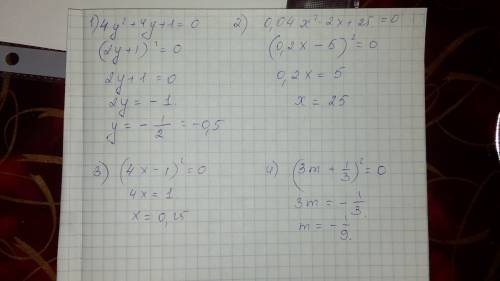 1) 4y² + 4y + 1 = 0
(2y + 1)² = 0
2y + 1 = 0
2y = - 1
y = - 1/2 = -0,5
2) 0,04x² - 2x + 25 = 0
(0,2x - 5)² = 0
0,2x = 5
x = 25
3) (4x - 1)² = 0
4x = 1
x = 0,25
4) (3m + 1/3)² = 0
3m = - 1/3.
m = - 1/9.